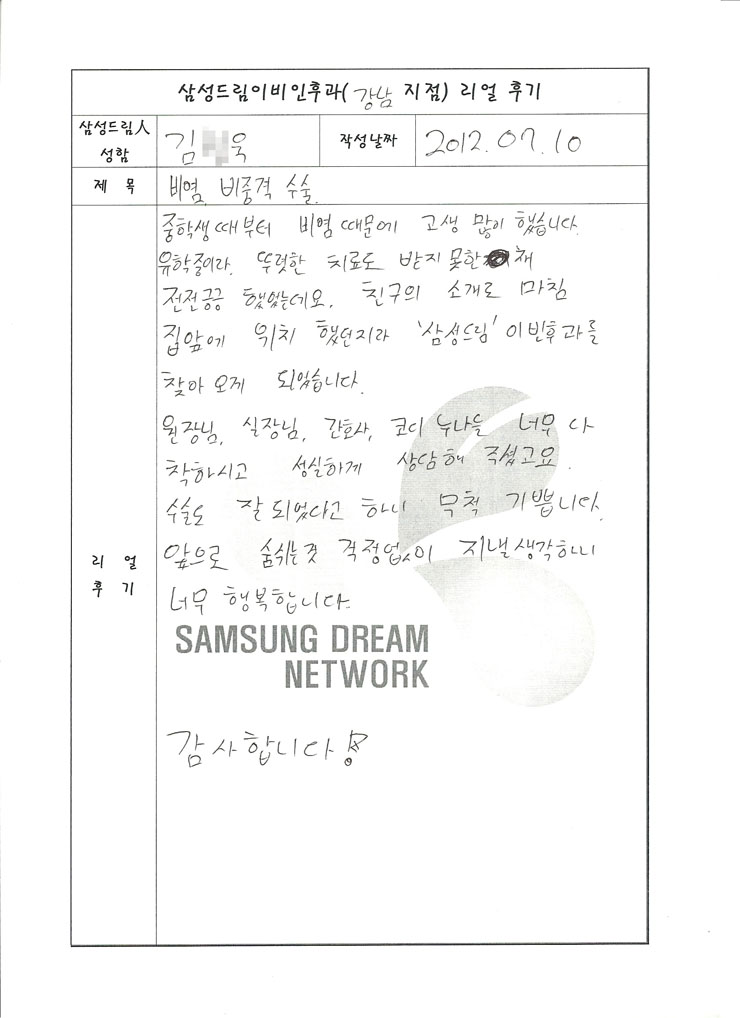 삼성드림이비인후과( 강남 지점) 리얼 후기
삼성드림人 성함
김 욱
작성날짜
2012. 07. 10
제 목
비염, 비중격 수술.
리 얼 후 기
중학생때부터 비염때문에 고생 많이 했습니다.
유학중이라. 뚜렷한 치료도 받지 못한 채
전전긍긍 했었는데요. 친구의 소개로 마침
집앞에 위치 했던지라 '삼성드림' 이빈후과를
찾아 오게 되었습니다.
원장님, 실장님, 간호사, 코디 누나들 너무 다
착하시고 성실하게 상담해 주셨고요.
수술도 잘 되었다고 하니 무척 기쁩니다.
앞으로 숨쉬는것 걱정없이 지낼생각하니
너무 행복합니다.
SAMSUNG DREAM
NETWORK
감사합니다!